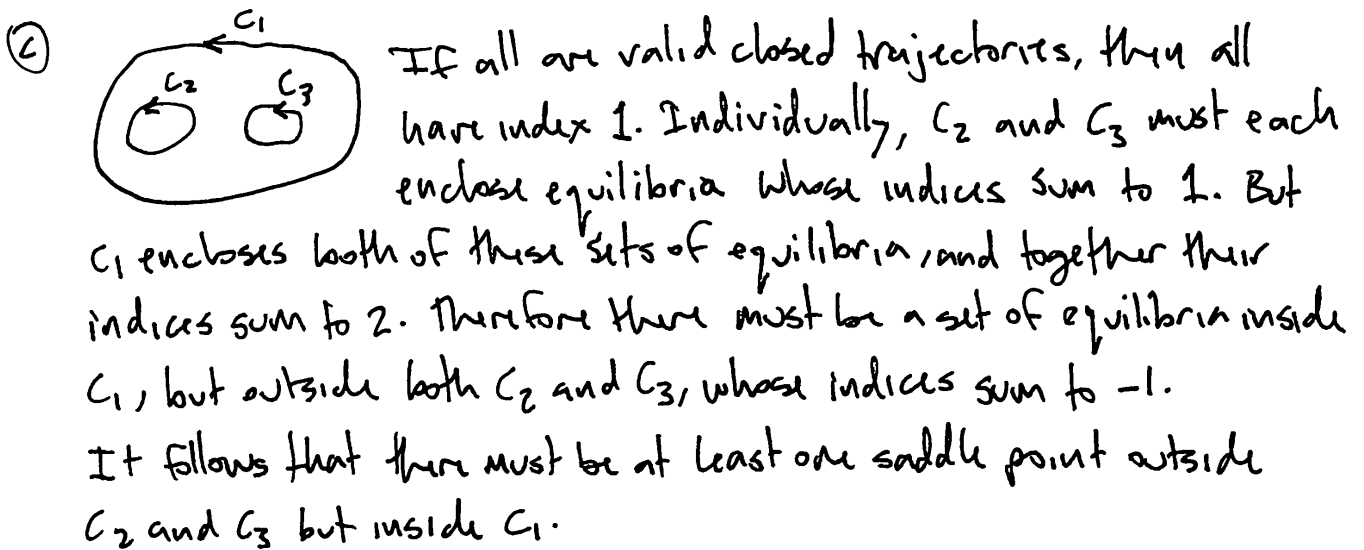 c
C₁
C₂ C₃
If all are valid closed trajectories, then all
have index 1. Individually, C₂ and C₃ must each
enclose equilibria whose indices sum to 1. But
C₁ encloses both of these sets of equilibria, and together their
indices sum to 2. Therefore there must be a set of equilibria inside
C₁, but outside both C₂ and C₃, whose indices sum to -1.
It follows that there must be at least one saddle point outside
C₂ and C₃ but inside C₁.